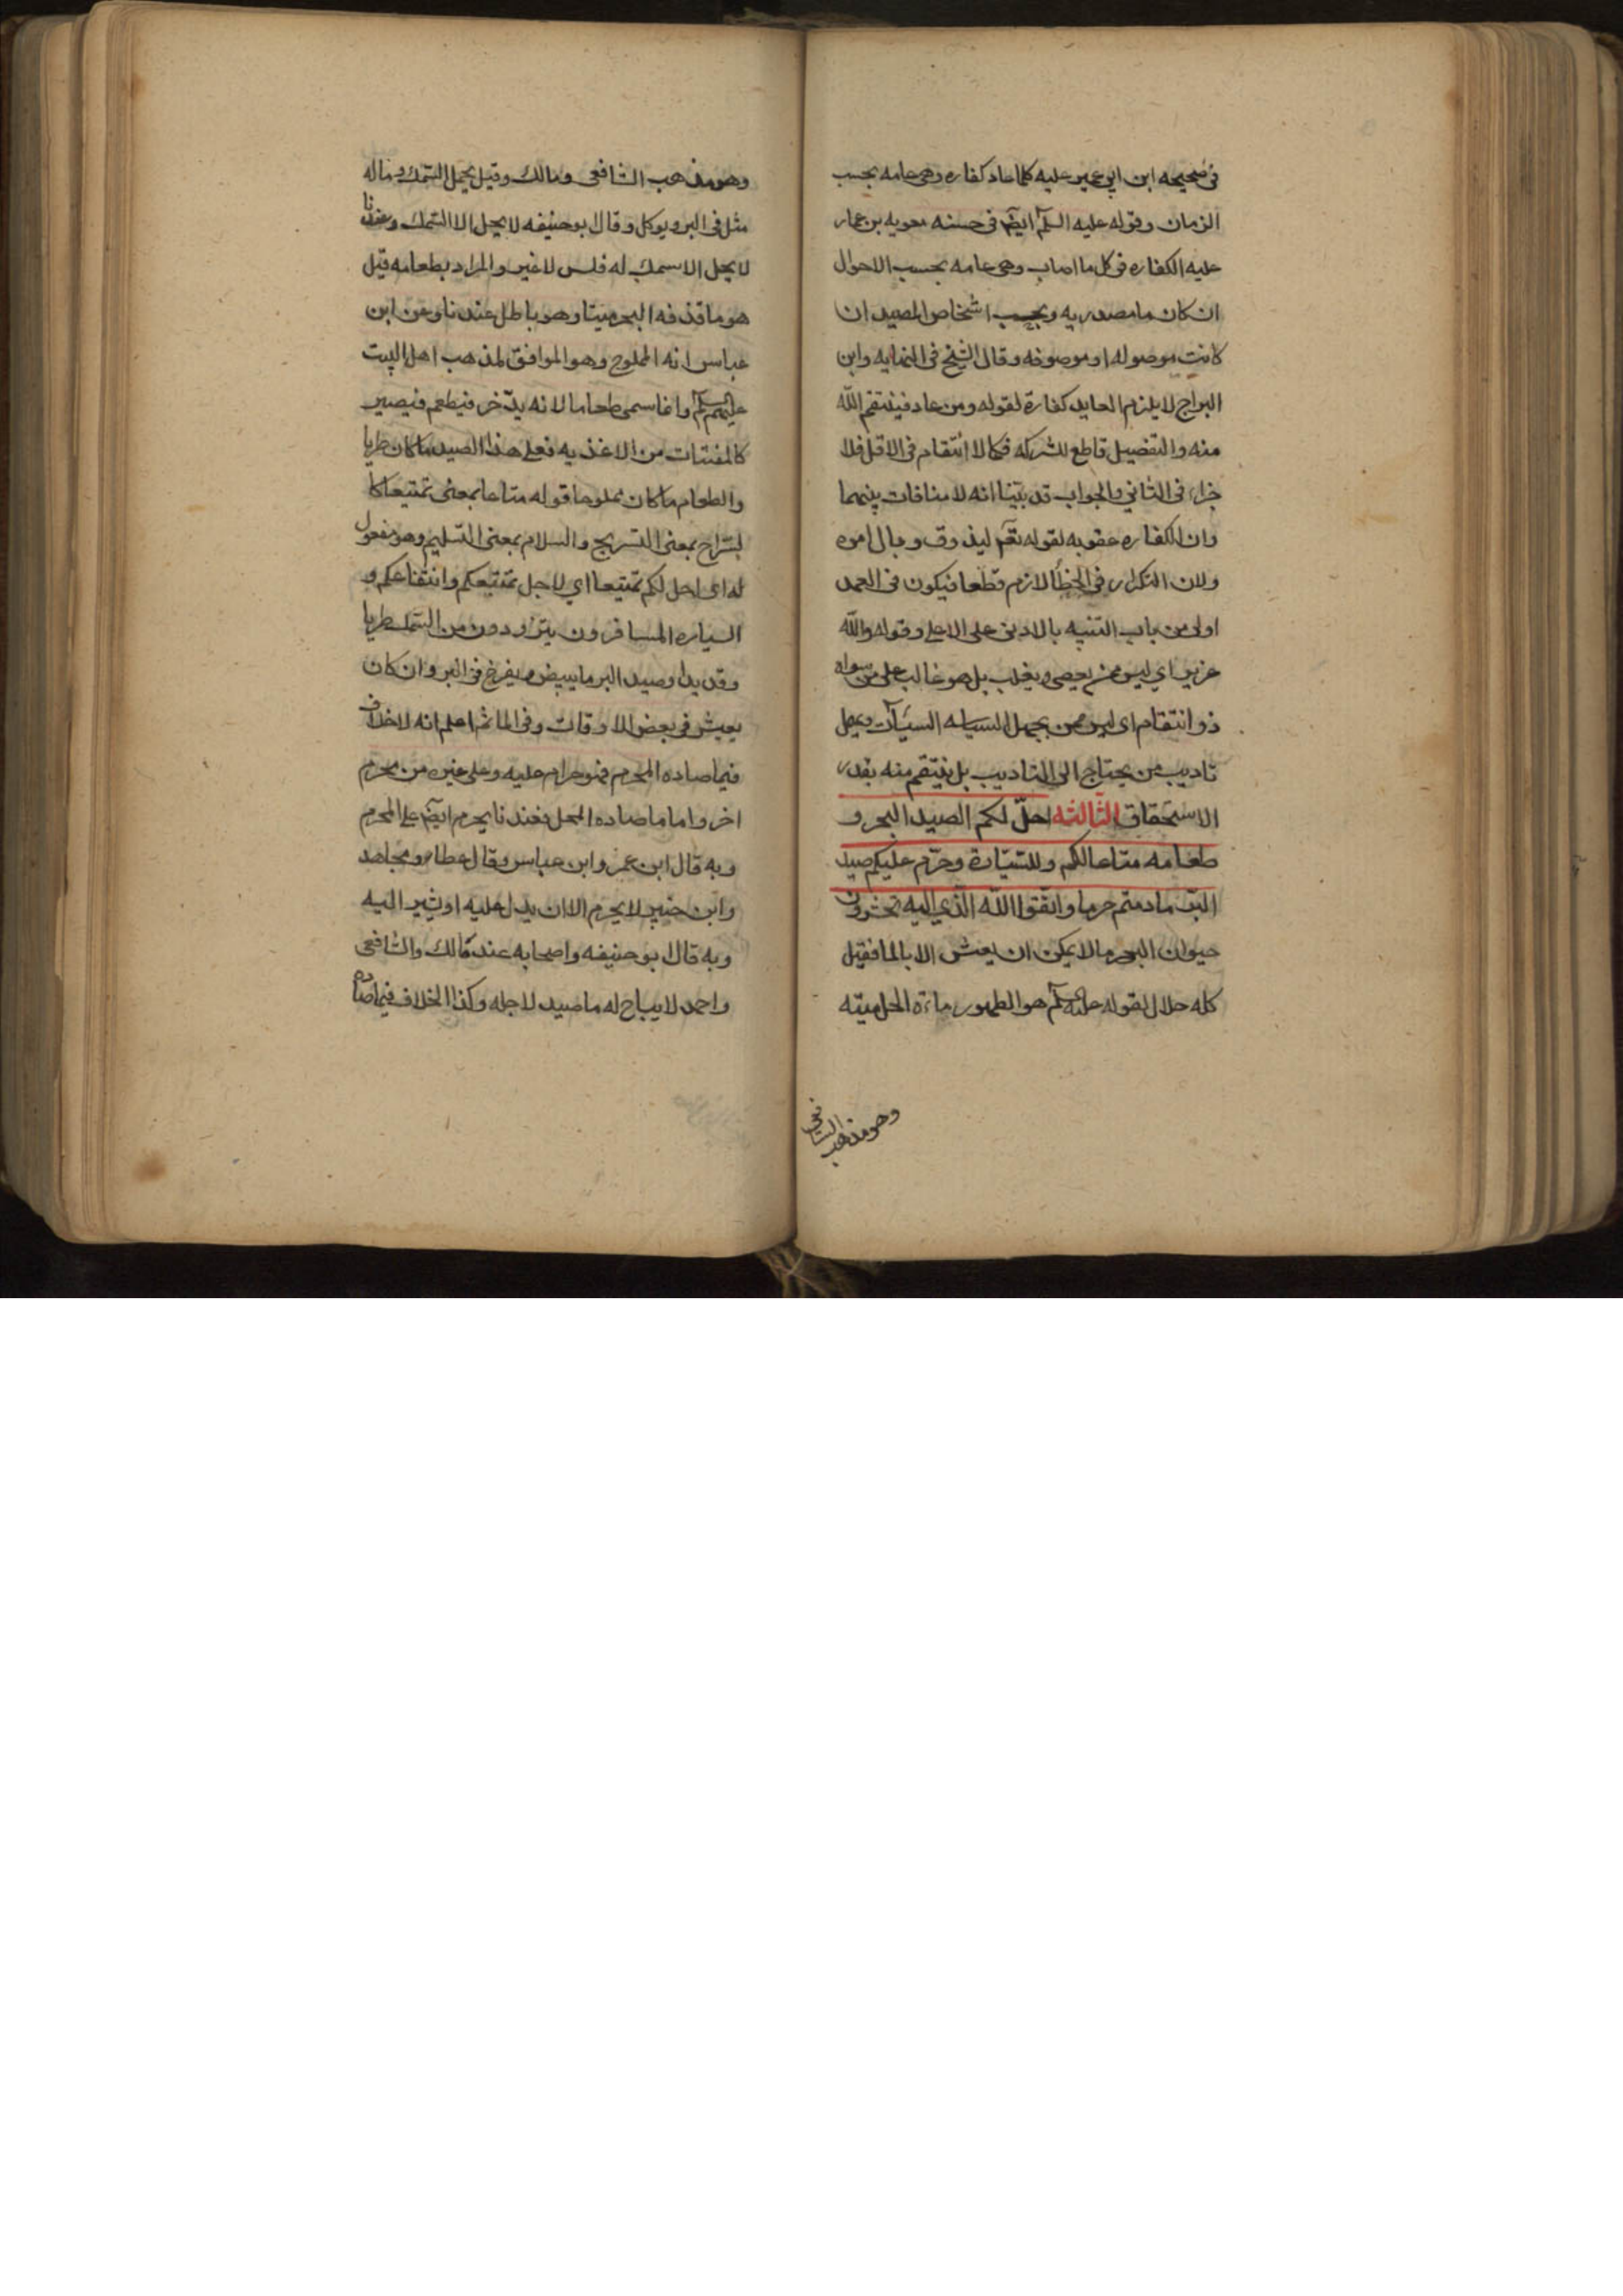 في صحيحه ابن ابي عمير عليه كلما عاد كفاره وهي عامه بحسب
الزمان وقوله عليه السلم ايضم في حسنه معويه بن عمار
عليه الكفاره في كل ما اصاب وهي عامه بحسب الاحوال
ان كان ما مصدريه وبحسب اشخاص الصيد ان
كانت موصوله او موصوفه وقال الشيخ في النهايه وابن
البراج لا يلزم العايد كفارة لقوله ومن عاد فينتقم الله
منه والتفصيل قاطع للشركه فكما لا انتقام في الاقل فلا
جزاء في الثاني والجواب قد بيّنا انه لا منافات بينهما
وان الكفاره عقوبه لقوله تعم ليذوق وبال امره
ولان التكرار في الخطأ لازم قطعا فيكون في العمد
اولى من باب التنبيه بالادنى على الاعلى وقوله والله
عزيز اي ليس ممن يعصى ويغلب بل هو غالب على من سواه
ذو انتقام اي ليس ممن يجهل السياسه السيآت ويهمل
تاديب من يحتاج الى التاديب بل ينتقم منه بقدر
الاستحقاق الثالثه احلّ لكم الصيد البحر و
طعامه متاعا لكم وللسيّارة وحرّم عليكم صيد
البرّ ما دمتم حرما واتقوا الله الّذي اليه تحشرون
حيوان البحر ما لا يمكن ان يعيش الا بالما فقيل
كله حلال لقوله عليه السلم هو الطهور ماءه الحل ميتته
وهو مذهب الشافعي
وهو مذهب الشافعي ومالك وقيل يحل السمك وماله
مثل في البر ويوكل وقال بوحنيفه لا يحل الا السمك وعندنا
لا يحل الا سمك له فلس لا غير والمراد بطعامه قيل
هو ما قذفه البحر ميتا وهو باطل عندنا وعن ابن
عباس انه المملوح وهو الموافق لمذهب اهل البيت
عليهم السلم وانما سمى طعاما لانه يدّخر فيطعم فيصير
كالمقتات من الاغذيه فعلى هذا الصيد ما كان طريا
والطعام ما كان مملوحا قوله متاعا بمعنى تمتيعا كا
لسّراح بمعنى التسريح والسلام بمعنى التسليم وهو مفعول
له اى احل لكم تمتيعا اي لاجل تمتيعكم وانتفاعكم و
السياره المسافرون يتزودون من السمك طريا
وقديدا وصيد البر ما يبيض ويفرخ في البر وان كان
يعيش في بعض الاوقات وفي الما ثم اعلم انه لا خلاف
فيما صاده المحرم فهو حرام عليه وعلى غيره من محرم
اخر واما ما صاده المحل فعندنا يحرم ايضم على المحرم
وبه قال ابن عمر وابن عباس وقال عطاء ومجاهد
وابن جبير لا يحرم الا ان يدل عليه او يشير اليه
وبه قال بوحنيفه واصحابه عند مالك والشافعي
واحمد لا يباح له ما صيد لاجله وكذا الخلاف فيما صاده